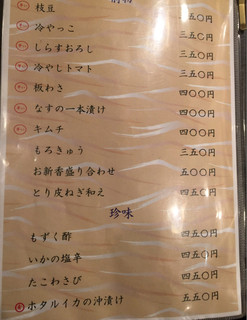 枝豆 三五〇円
冷やっこ 三五〇円
しらすおろし 三五〇円
冷やしトマト 三五〇円
板わさ 四〇〇円
なすの一本漬け 四〇〇円
キムチ 四〇〇円
もろきゅう 三五〇円
お新香盛り合わせ 五〇〇円
とり皮ねぎ和え 四五〇円
珍味
もずく酢 四五〇円
いかの塩辛 四五〇円
たこわさび 四五〇円
ホタルイカの沖漬け 五五〇円